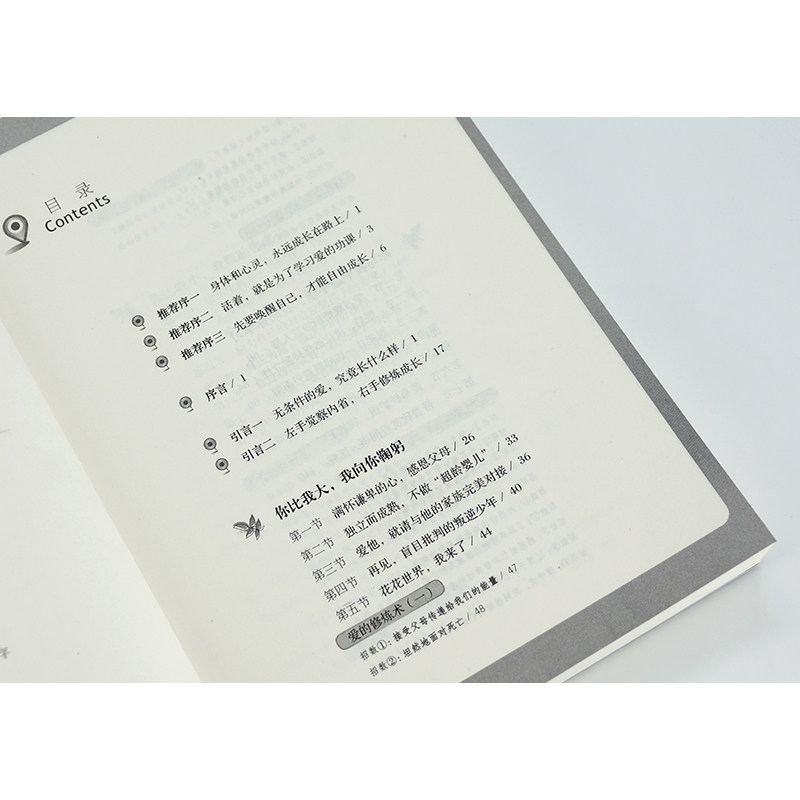 目 录
Contents
推荐序一 身体和心灵，永远成长在路上 / 1
推荐序二 活着，就是为了学习爱的功课 / 3
推荐序三 先要唤醒自己，才能自由成长 / 6
序言 / 1
引言一 无条件的爱，究竟长什么样 / 1
引言二 左手觉察内省，右手修炼成长 / 17
你比我大，我向你鞠躬
第一节 满怀谦卑的心，感恩父母 / 26
第二节 独立而成熟，不做“超龄婴儿” / 33
第三节 爱他，就请与他的家族完美对接 / 36
第四节 再见，盲目批判的叛逆少年 / 40
第五节 花花世界，我来了 / 44
爱的修炼术（一）
招数①：接受父母传递给我们的能量 / 47
招数②：坦然地面对死亡 / 48
字